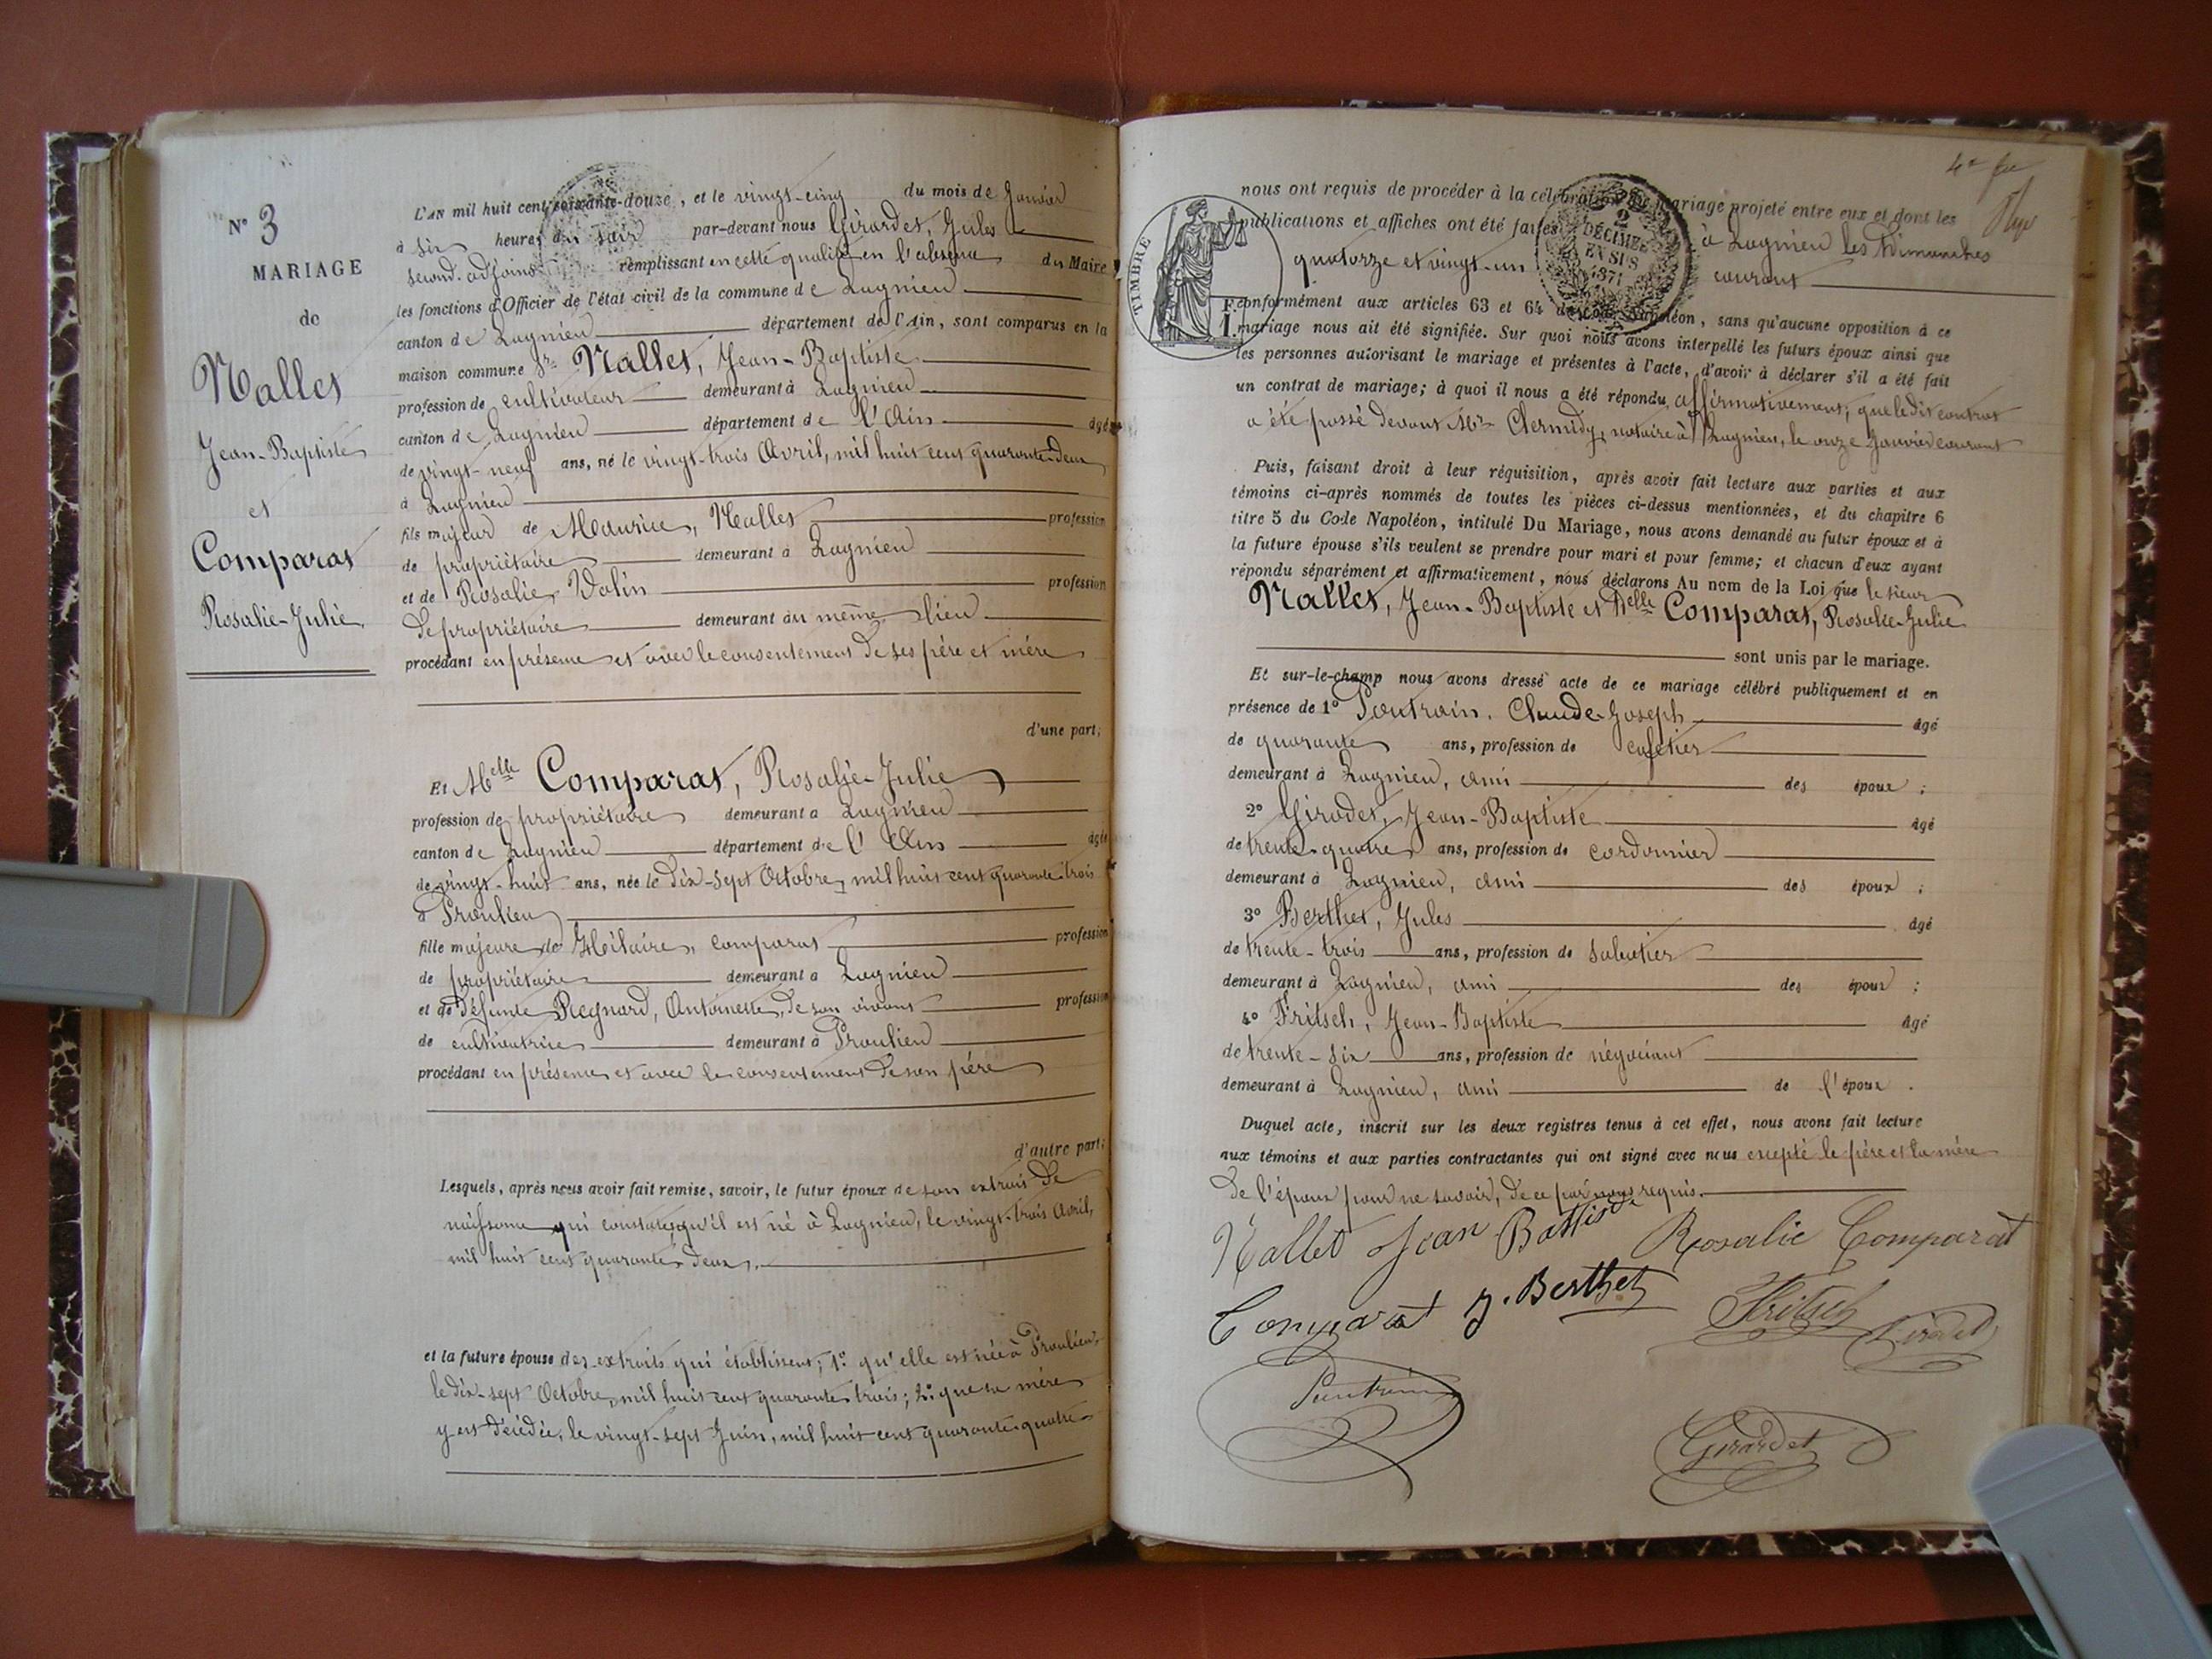 N° 3
MARIAGE
de
Nallet
Jean-Baptiste
et
Comparat
Rosalie-Julie
L'an mil huit cent soixante-douze, et le vingt-cinq du mois de Janvier
à six heures du soir par-devant nous Girardet, Jules
second adjoint remplissant en cette qualité en l'absence du Maire
les fonctions d'Officier de l'état civil de la commune de Lagnieu
canton de Lagnieu département de l'Ain, sont comparus en la
maison commune Sr Nallet, Jean-Baptiste
profession de cultivateur demeurant à Lagnieu
canton de Lagnieu département de l'Ain âgé
de vingt-neuf ans, né le vingt-trois Avril, mil huit cent quarante-deux
à Lagnieu
fils majeur de Maurice, Nallet profession
de propriétaire demeurant à Lagnieu
et de Rosalie, profession
de propriétaire demeurant au même lieu
procédant en présence et avec le consentement de ses père et mère
d'une part;
Et Melle Comparat, Rosalie-Julie
profession de propriétaire demeurant à Lagnieu
canton de Lagnieu département de l'Ain âgée
de vingt-huit ans, née le dix-sept Octobre, mil huit cent quarante-trois
à Proulieu
fille majeure de Hilaire, Comparat profession
de propriétaire demeurant à Lagnieu
et de défunte Regnard, Antoinette, de son vivant profession
de cultivatrice demeurant à Proulieu
procédant en présence et avec le consentement de son père
d'autre part;
Lesquels, après nous avoir fait remise, savoir, le futur époux de son extrait de
naissance qui constate qu'il est né à Lagnieu, le vingt-trois Avril,
mil huit cent quarante deux.
et la future épouse des extraits qui établissent, 1° qu'elle est née à Proulieu,
le dix-sept Octobre, mil huit cent quarante trois; 2° que sa mère
y est décédée, le vingt-sept Juin, mil huit cent quarante-quatre
nous ont requis de procéder à la célébration du mariage projeté entre eux et dont les
publications et affiches ont été faites à Lagnieu les Dimanches
quatorze et vingt-un courant
TIMBRE
2
DÉCIMES
EN SUS
1871
conformément aux articles 63 et 64 du Code Napoléon, sans qu'aucune opposition à ce
mariage nous ait été signifiée. Sur quoi nous avons interpellé les futurs époux ainsi que
les personnes autorisant le mariage et présentes à l'acte, d'avoir à déclarer s'il a été fait
un contrat de mariage; à quoi il nous a été répondu affirmativement, que ledit contrat
a été passé devant Me Clermidy, notaire à Lagnieu, le onze Janvier courant
Puis, faisant droit à leur réquisition, après avoir fait lecture aux parties et aux
témoins ci-après nommés de toutes les pièces ci-dessus mentionnées, et du chapitre 6
titre 5 du Code Napoléon, intitulé Du Mariage, nous avons demandé au futur époux et à
la future épouse s'ils veulent se prendre pour mari et pour femme; et chacun d'eux ayant
répondu séparément et affirmativement, nous déclarons Au nom de la Loi que le sieur
Nallet, Jean-Baptiste et Delle Comparat, Rosalie-Julie
sont unis par le mariage.
Et sur-le-champ nous avons dressé acte de ce mariage célébré publiquement et en
présence de 1° Pautrain, Claude-Joseph âgé
de quarante ans, profession de cafetier
demeurant à Lagnieu, ami des époux;
2° Girodet, Jean-Baptiste âgé
de trente-quatre ans, profession de cordonnier
demeurant à Lagnieu, ami des époux;
3° Berthet, Jules âgé
de trente-trois ans, profession de sabotier
demeurant à Lagnieu, ami des époux;
4° Fritsch, Jean-Baptiste âgé
de trente-six ans, profession de négociant
demeurant à Lagnieu, ami de l'époux.
Duquel acte, inscrit sur les deux registres tenus à cet effet, nous avons fait lecture
aux témoins et aux parties contractantes qui ont signé avec nous excepté le père et la mère
de l'époux pour ne savoir, de ce par nous requis.
Nallet Jean Battiste Rosalie Comparat
Comparat J. Berthet Fritsch Girodet
Pautrain
Girardet